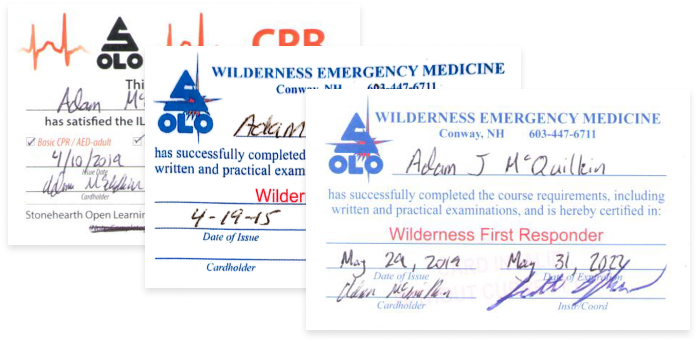 CPR
SOLO
Thi
Adam McQ
has satisfied the IL
Basic CPR / AED-adult
4/10/2019
Issue Date
Adam McQuilkin
Cardholder
Stonehearth Open Learnin
SOLO
WILDERNESS EMERGENCY MEDICINE
Conway, NH 603-447-6711
Adam
has successfully completed
written and practical exam
Wilder
4-19-15
Date of Issue
Cardholder
SOLO
WILDERNESS EMERGENCY MEDICINE
Conway, NH 603-447-6711
Adam J McQuilkin
has successfully completed the course requirements, including
written and practical examinations, and is hereby certified in:
Wilderness First Responder
May 29, 2019 May 31, 2022
Date of Issue Date of Expiration
Adam McQuilkin
Cardholder Instr/Coord